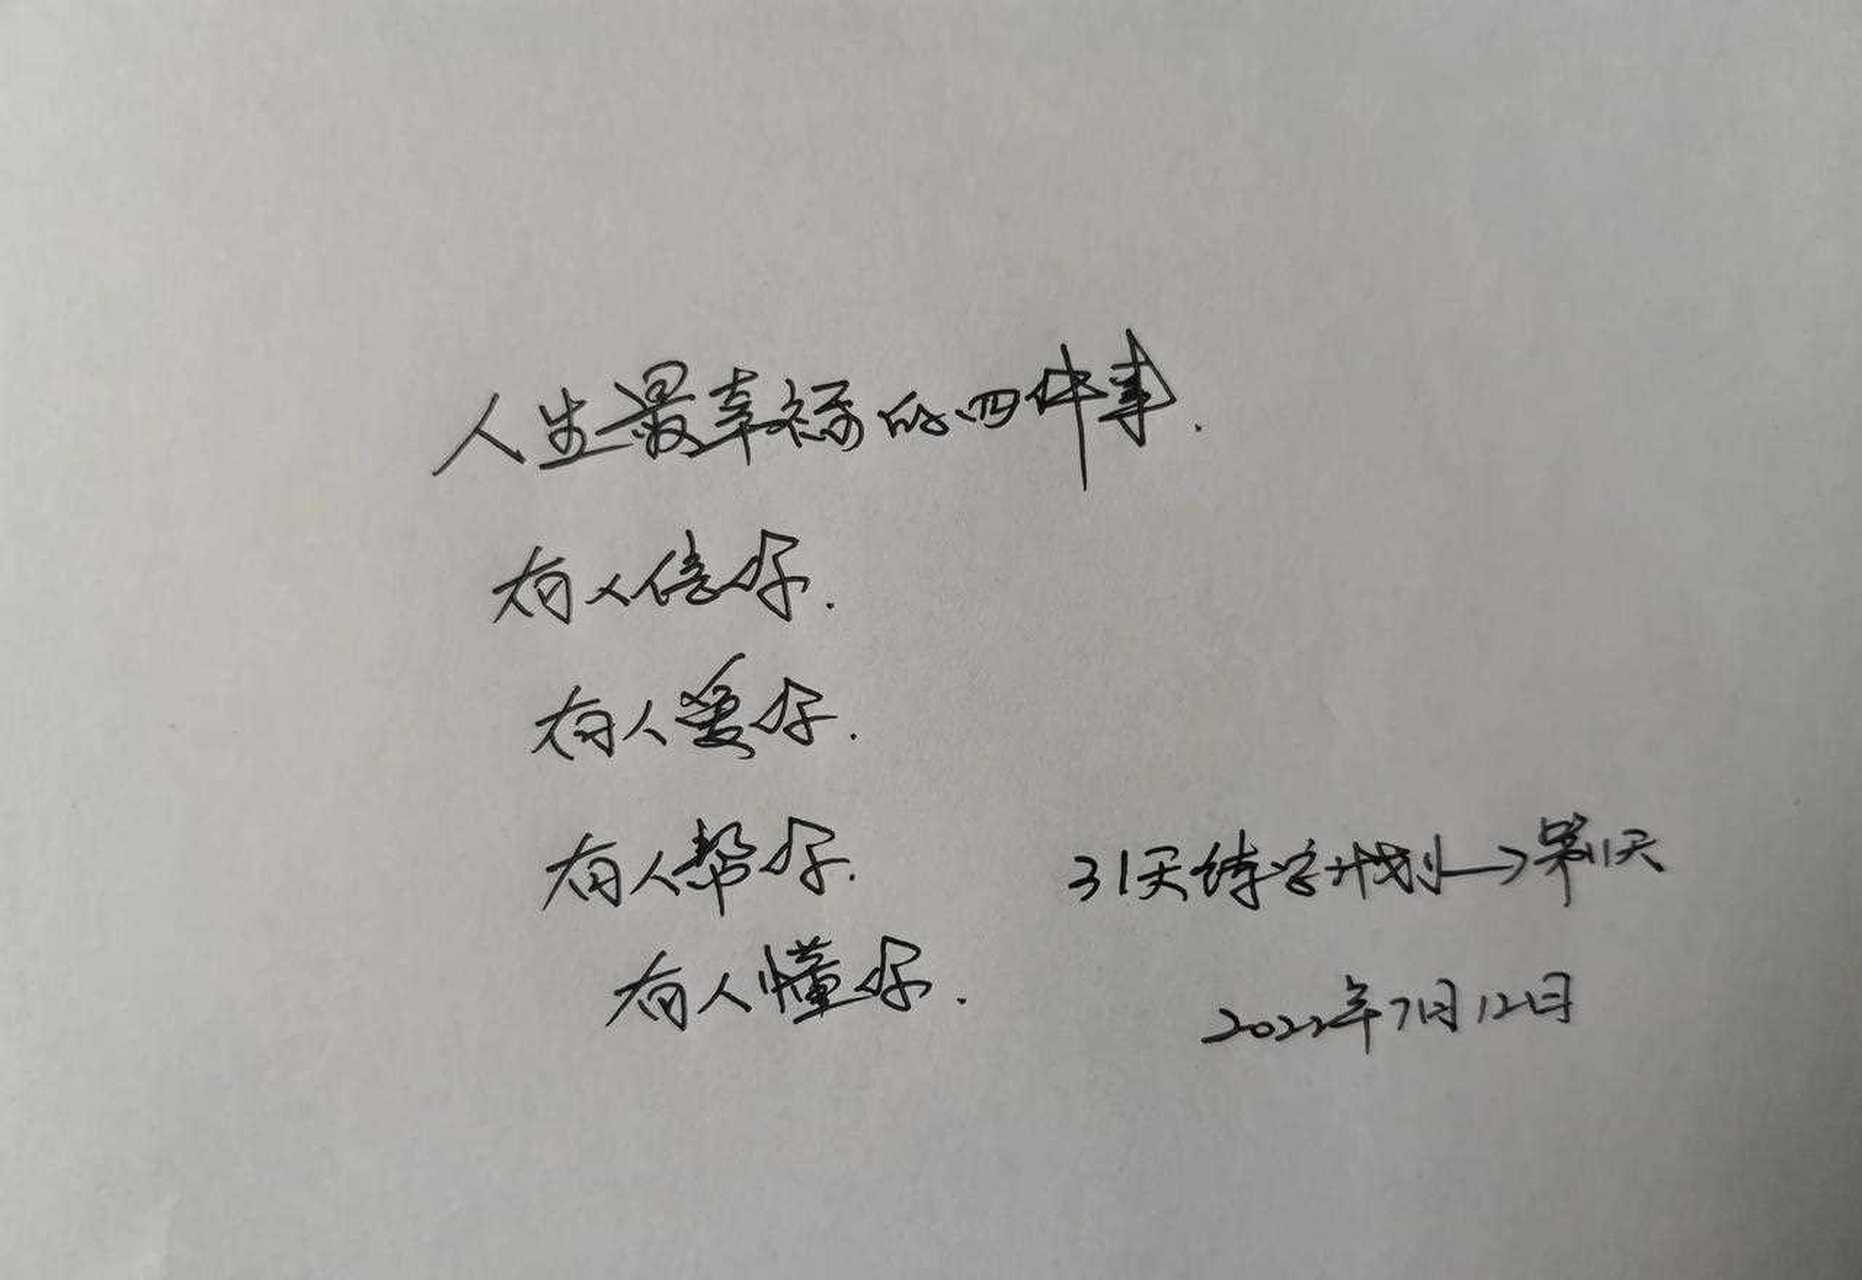 人生最幸福的四件事.
有人信你.
有人爱你.
有人帮你.
有人懂你.
31天练字计划→第11天
2022年7月12日